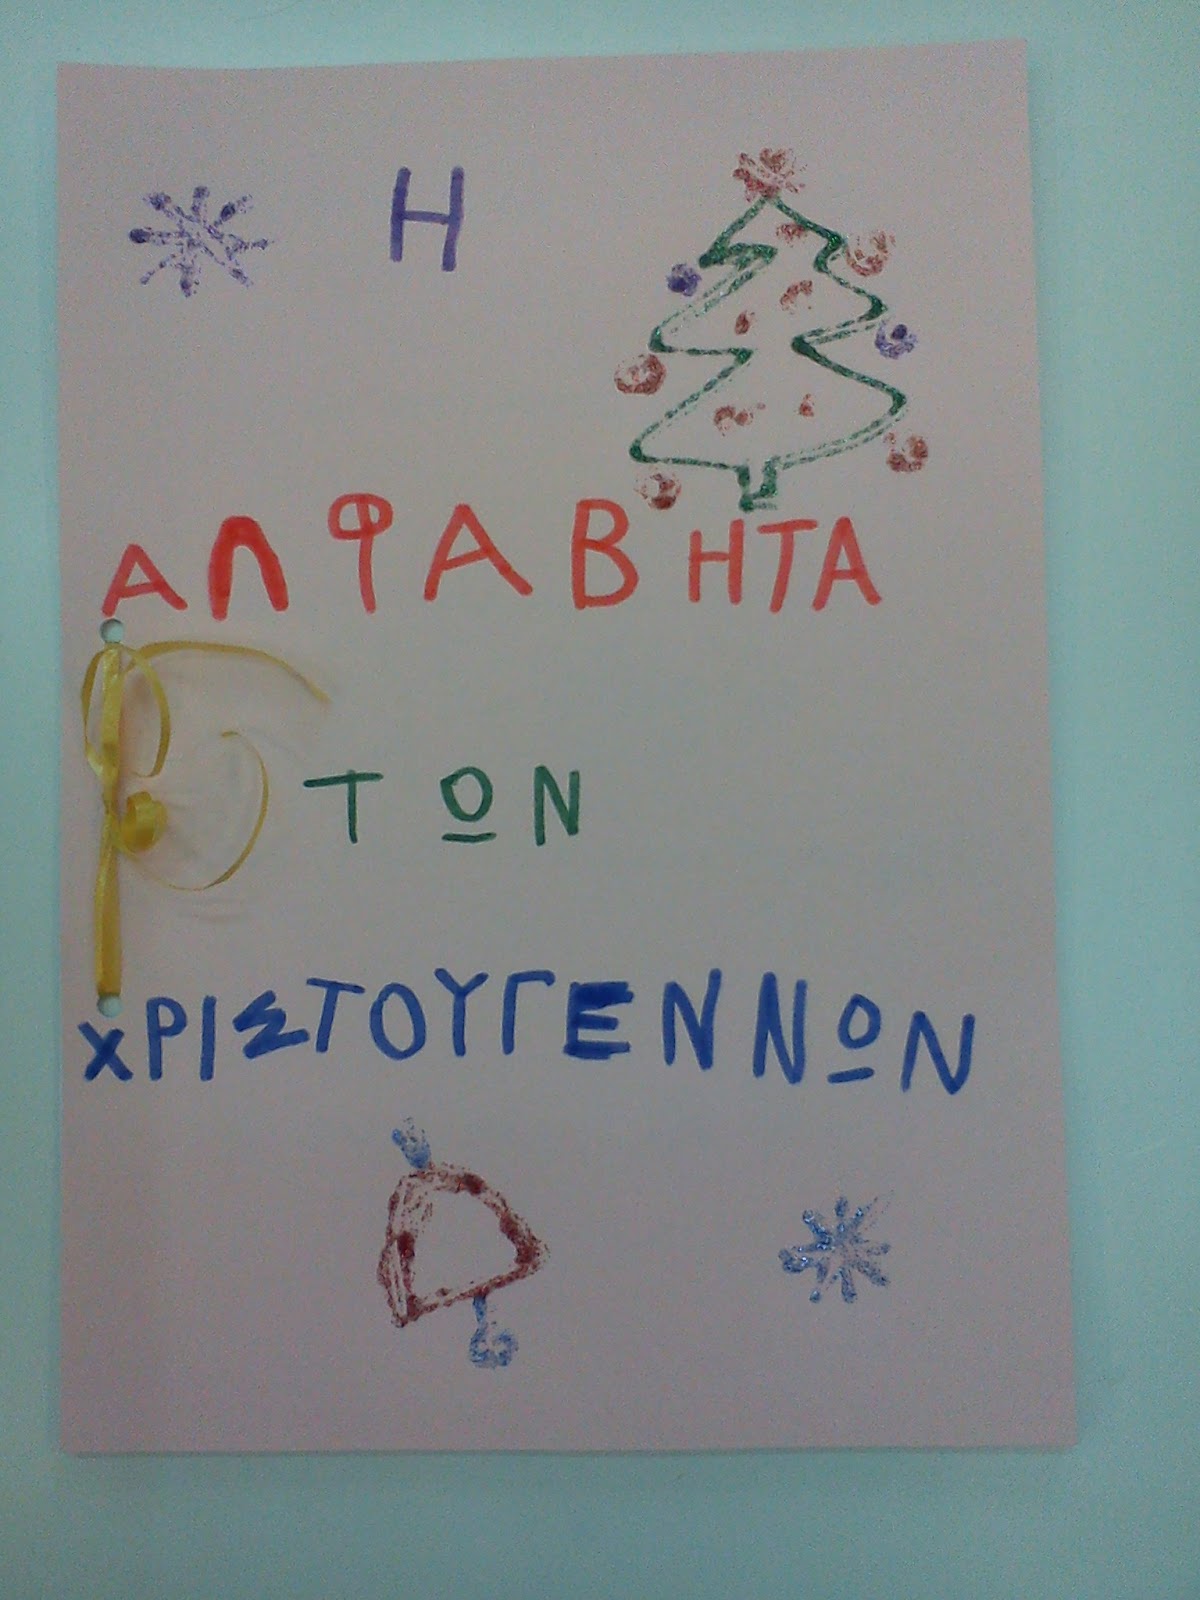 Η
ΑΛΦΑΒΗΤΑ
ΤΩΝ
ΧΡΙΣΤΟΥΓΕΝΝΩΝ